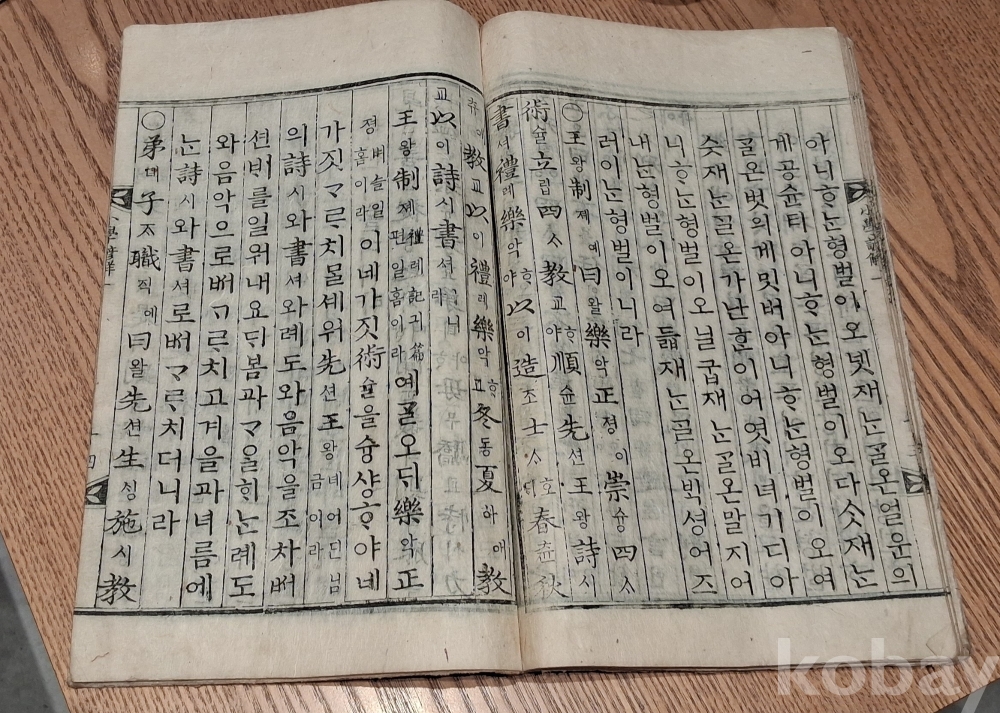 아니ᄒᆞᄂᆞᆫ형벌이오넷재ᄂᆞᆫᄀᆞᆯ온얼운의
게공슌티아니ᄒᆞᄂᆞᆫ형벌이오다ᄉᆞᆺ재ᄂᆞᆫ
ᄀᆞᆯ온벗의게밋버아니ᄒᆞᄂᆞᆫ형벌이오여
ᄉᆞᆺ재ᄂᆞᆫᄀᆞᆯ온가난ᄒᆞᆫ이어엿비녀기디아
니ᄒᆞᄂᆞᆫ형벌이오닐굽재ᄂᆞᆫᄀᆞᆯ온말지어
내ᄂᆞᆫ형벌이오여ᄃᆞᆲ재ᄂᆞᆫᄀᆞᆯ온ᄇᆡᆨ셩어즈
러이ᄂᆞᆫ형벌이니라
○王왕制졔예曰왈樂악正졍이崇슝四ᄉᆞ
術슐立립四ᄉᆞ敎교ᄒᆞ야順슌先션王왕詩시
書셔禮례樂악ᄒᆞ야以이造조士ᄉᆞ호ᄃᆡ春츈秋
츄애敎교以이禮례樂악ᄒᆞ고冬동夏하애敎
교以이詩시書셔ᄒᆞ더니라
王왕制졔禮례記긔篇편일홈이라예ᄀᆞᆯ오ᄃᆡ樂악正
졍벼슬일홈이라이네가짓術슐을슝샹ᄒᆞ야네
가짓ᄀᆞᄅᆞ치믈셰워先션王왕녜어딘님금이라
의詩시와書셔와례도와음악을조차ᄡᅥ
션ᄇᆡ를일워내요ᄃᆡ봄과ᄀᆞᄋᆞᆯᄒᆡᄂᆞᆫ례도
와음악으로ᄡᅥᄀᆞᄅᆞ치고겨을과녀름에
ᄂᆞᆫ詩시와書셔로ᄡᅥᄀᆞᄅᆞ치더니라
○弟뎨子ᄌᆞ職직에曰왈先션生ᄉᆡᆼ施시敎
kobay